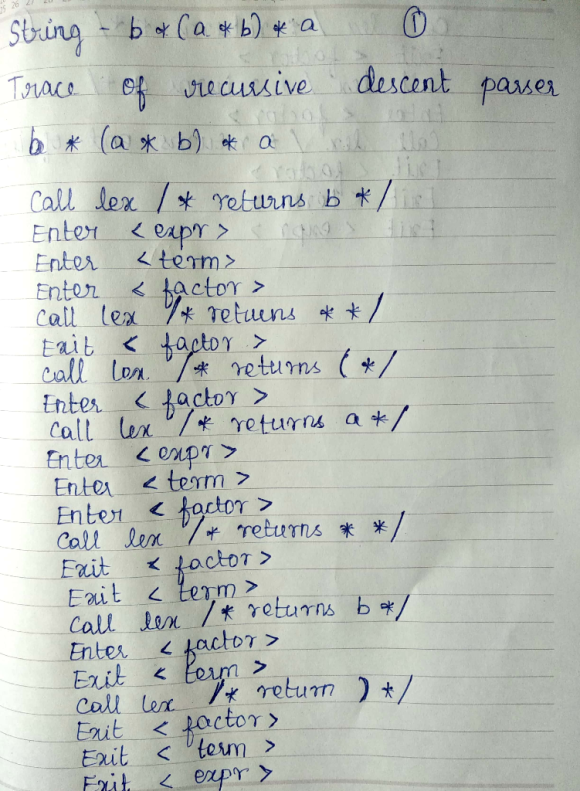 String - b * (a * b) * a ①
Trace of recursive descent parser
b * (a * b) * a
Call lex /* returns b */
Enter <expr>
Enter <term>
Enter <factor>
Call lex /* returns * */
Exit <factor>
Call lex /* returns ( */
Enter <factor>
Call lex /* returns a */
Enter <expr>
Enter <term>
Enter <factor>
Call lex /* returns * */
Exit <factor>
Exit <term>
Call lex /* returns b */
Enter <factor>
Exit <term>
Call lex /* return ) */
Exit <factor>
Exit <term>
Exit <expr>